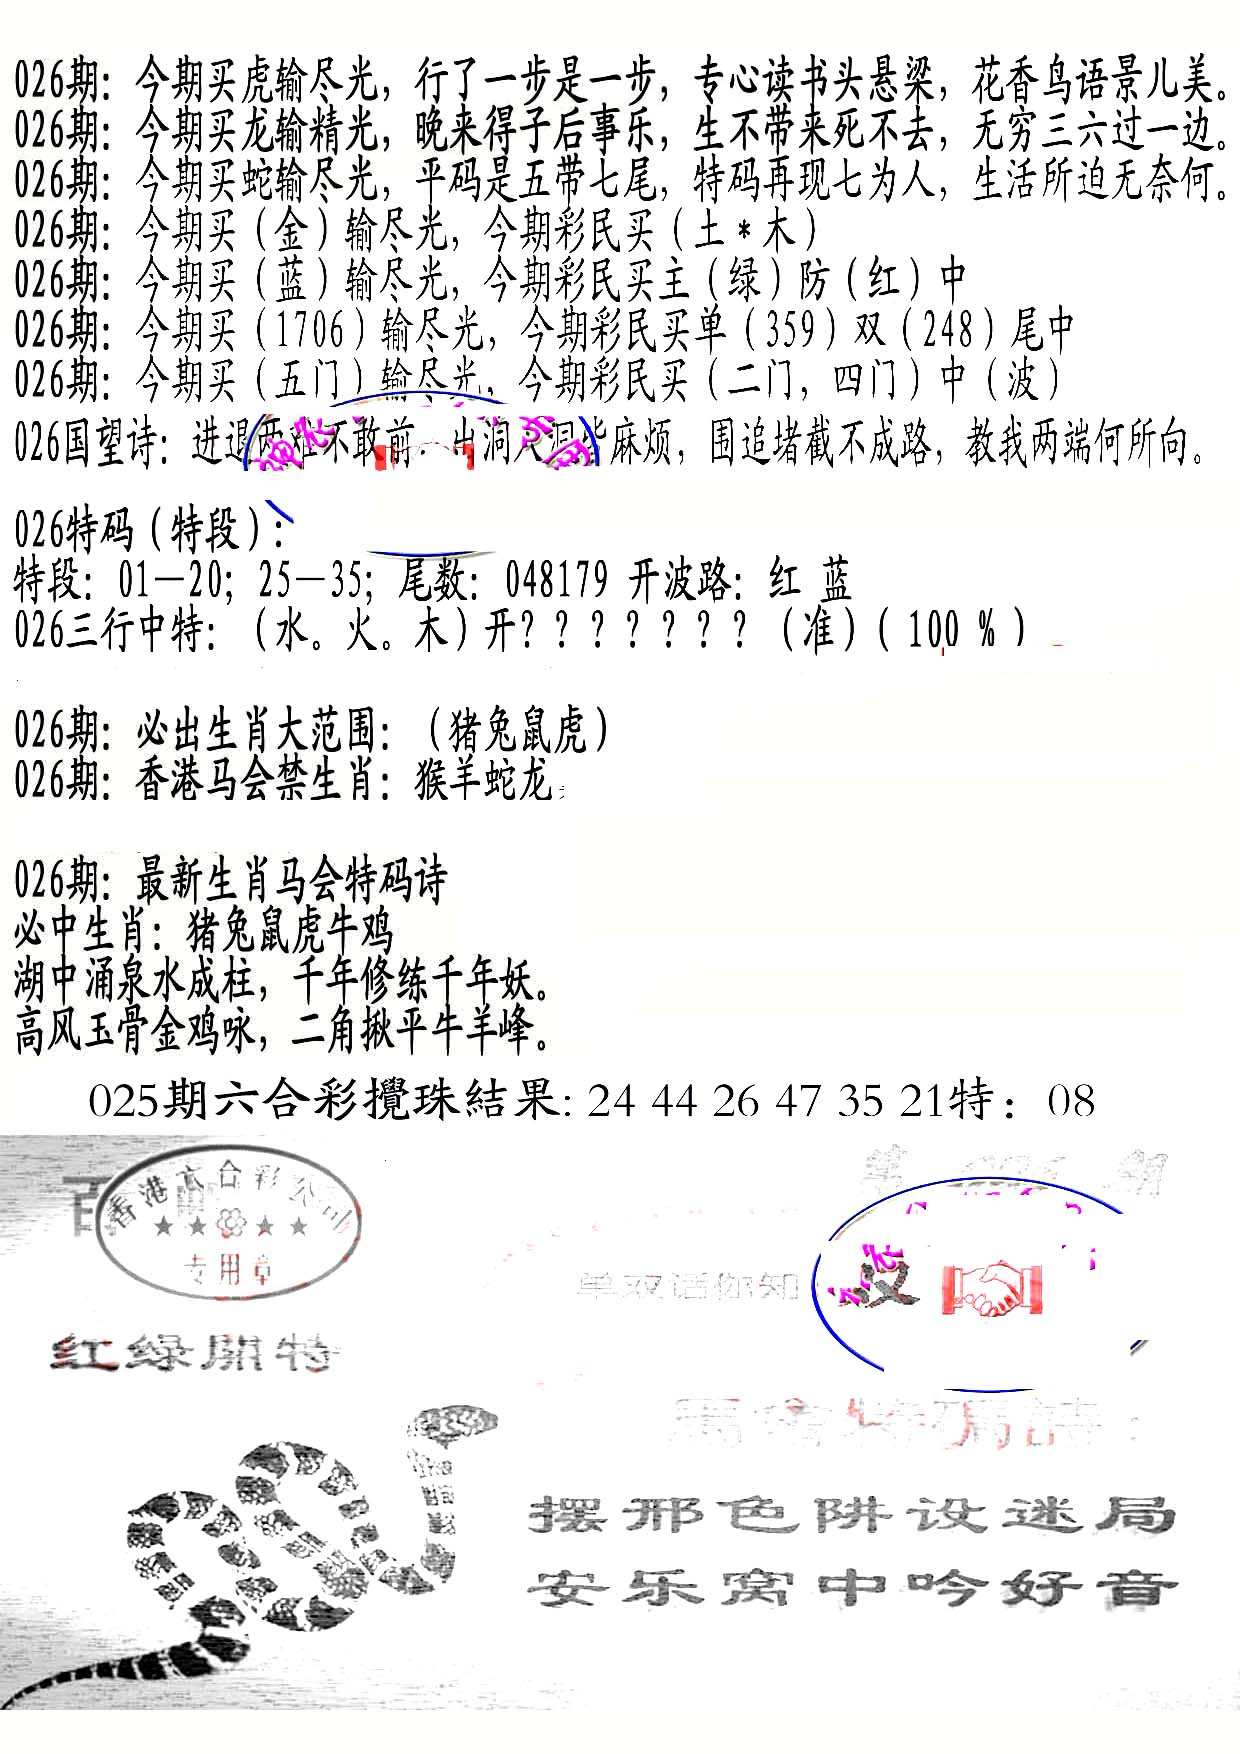 026期：今期买虎输尽光，行了一步是一步，专心读书头悬梁，花香鸟语景儿美。
026期：今期买龙输精光，晚来得子后事乐，生不带来死不去，无穷三六过一边。
026期：今期买蛇输尽光，平码是五带七尾，特码再现七为人，生活所迫无奈何。
026期：今期买（金）输尽光，今期彩民买（土*木）
026期：今期买（蓝）输尽光，今期彩民买主（绿）防（红）中
026期：今期买（1706）输尽光，今期彩民买单（359）双（248）尾中
026期：今期买（五门）输尽光，今期彩民买（二门，四门）中（波）
026国望诗：进退两难不敢前，出洞入洞 麻烦，围追堵截不成路，教我两端何所向。
026特码（特段）：
特段：01—20；25—35；尾数：048179 开波路：红 蓝
026三行中特：（水。火。木）开？？？？？？？（准）（100 %）
026期：必出生肖大范围：（猪兔鼠虎）
026期：香港马会禁生肖：猴羊蛇龙
026期：最新生肖马会特码诗
必中生肖：猪兔鼠虎牛鸡
湖中涌泉水成柱，千年修练千年妖。
高风玉骨金鸡咏，二角揪平牛羊峰。
025期六合彩攪珠結果: 24 44 26 47 35 21特：08
香港六合彩公司
★★ ★★
专用章
第 期
单双话你知 双
红绿開特
摆邢色阱设迷局
安乐窝中吟好音